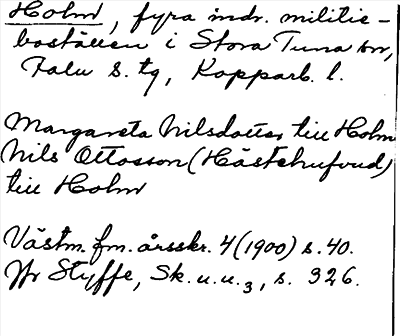 Holm, fyra indr. militie-
boställen i Stora Tuna sn,
Falu s. tg, Kopparb. l.
Margareta Nilsdotter till Holm
Nils Ottosson (Hästehufvud)
till Holm
Västm. fm. årsskr. 4 (1900) s. 40.
Jfr Styffe, Sk. u. u. 3, s. 326.